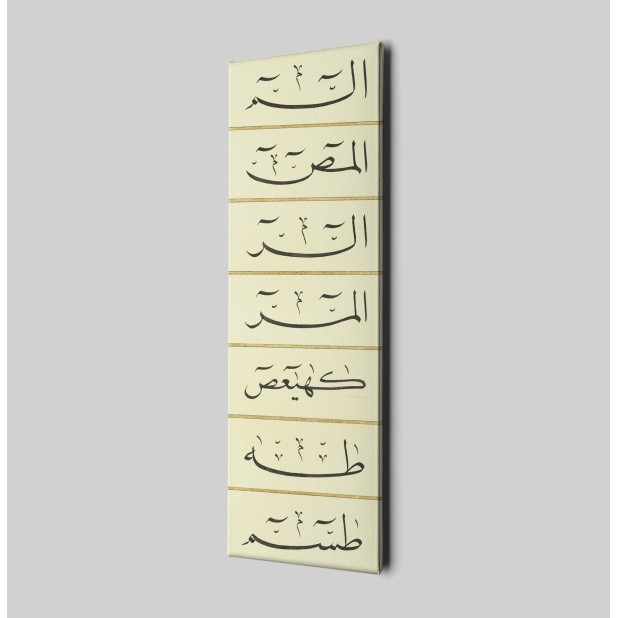 الٓمٓ
الٓمٓصٓ
الٓرٓ
الٓمٓرٓ
كٓهٰيٰعٓصٓ
طٰهٰ
طٰسٓمٓ